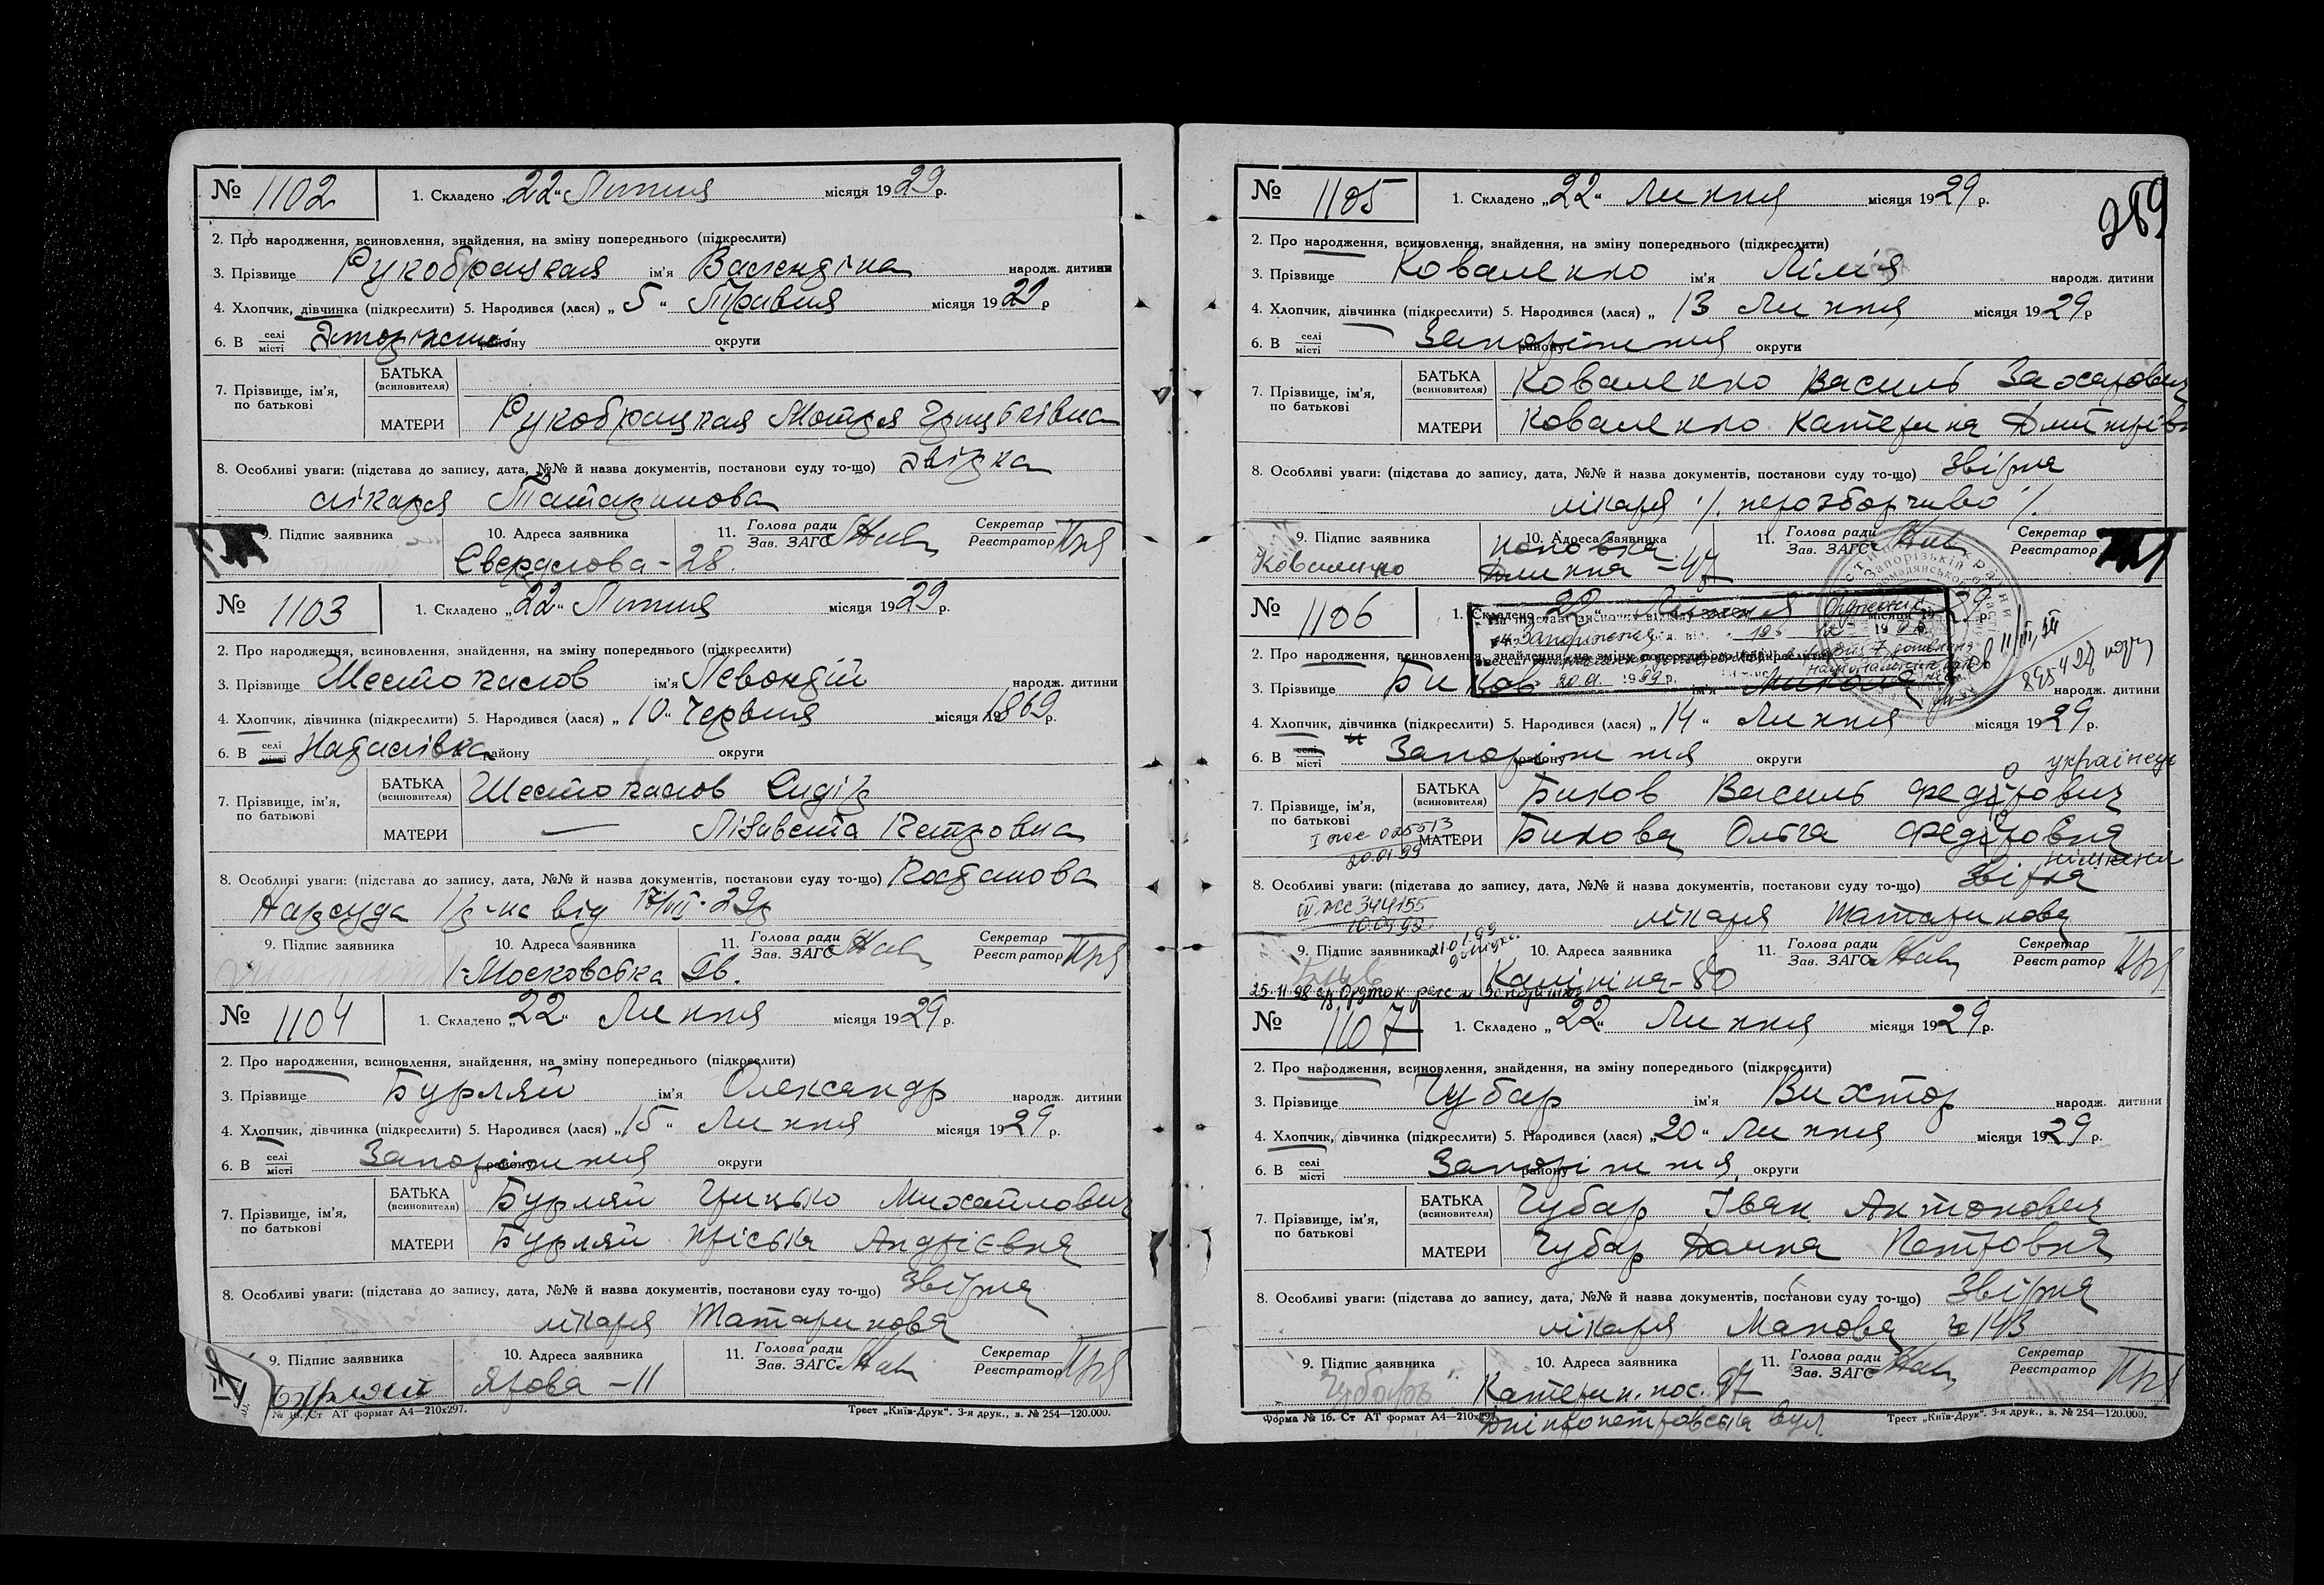 № 1102 1. Складено „22“ Липня місяця 1929 р.
2. Про народження, всиновлення, знайдення, на зміну попереднього (підкреслити)
3. Прізвище Рукобрацкая ім'я Валендіна народж. дитини
4. Хлопчик, дівчинка (підкреслити) 5. Народився (лася) „5“ Травня місяця 1929 р
6. В селі місті району округи
7. Прізвище, ім'я, по батькові
БАТЬКА (всиновителя)
МАТЕРИ Рукобрацкая Мотря
8. Особливі уваги: (підстава до запису, дата, №№ й назва документів, постанови суду то-що) звірка
лікаря Татаринова
9. Підпис заявника 10. Адреса заявника 11. Голова ради Зав. ЗАГС Секретар Реєстратор
Свердлова-28.
№ 1103 1. Складено „22“ Липня місяця 1929 р.
2. Про народження, всиновлення, знайдення, на зміну попереднього (підкреслити)
3. Прізвище Шестопалов ім'я Левондій народж. дитини
4. Хлопчик, дівчинка (підкреслити) 5. Народився (лася) „10“ Червня місяця 1869 р.
6. В селі місті Наталівка району округи
7. Прізвище, ім'я, по батькові
БАТЬКА (всиновителя) Шестопалов
МАТЕРИ — Лізавета Петровна
8. Особливі уваги: (підстава до запису, дата, №№ й назва документів, постанови суду то-що) Постанова
Нарсуда від 29р
9. Підпис заявника 10. Адреса заявника 11. Голова ради Зав. ЗАГС Секретар Реєстратор
Московська
№ 1104 1. Складено „22“ Липня місяця 1929 р.
2. Про народження, всиновлення, знайдення, на зміну попереднього (підкреслити)
3. Прізвище Бурляй ім'я Олександр народж. дитини
4. Хлопчик, дівчинка (підкреслити) 5. Народився (лася) „15“ Липня місяця 1929 р.
6. В селі місті Запоріжжя району округи
7. Прізвище, ім'я, по батькові
БАТЬКА (всиновителя) Бурляй Грицько Михайлович
МАТЕРИ Бурляй Пріська Андрієвна
8. Особливі уваги: (підстава до запису, дата, №№ й назва документів, постанови суду то-що) Звірка
лікаря Татаринова
9. Підпис заявника 10. Адреса заявника 11. Голова ради Зав. ЗАГС Секретар Реєстратор
Бурляй Ярова -11
№ 16. Ст АТ формат А4—210х297. Трест „Київ-Друк“. 3-я друк., з. № 254—120.000.
289
№ 1105 1. Складено „22“ Липня місяця 1929 р.
2. Про народження, всиновлення, знайдення, на зміну попереднього (підкреслити)
3. Прізвище Коваленко ім'я Лілія народж. дитини
4. Хлопчик, дівчинка (підкреслити) 5. Народився (лася) „13 Липня місяця 1929 р
6. В селі місті Запоріжжя району округи
7. Прізвище, ім'я, по батькові
БАТЬКА (всиновителя) Коваленко Василь Захарович
МАТЕРИ Коваленко Катерина Дмитрівн
8. Особливі уваги: (підстава до запису, дата, №№ й назва документів, постанови суду то-що) Звірка
лікаря ./. нерозборчиво ./.
9. Підпис заявника 10. Адреса заявника 11. Голова ради Зав. ЗАГС Секретар Реєстратор
Коваленко -47
№ 1106 1. Складено 22“ Липня місяця 1929 р.
2. Про народження, всиновлення, знайдення, на зміну попереднього (підкреслити)
3. Прізвище Биков ім'я Микола народж. дитини
20.01 1999 р.
4. Хлопчик, дівчинка (підкреслити) 5. Народився (лася) „14“ Липня місяця 1929 р.
6. В селі місті Запоріжжя району округи
українець
7. Прізвище, ім'я, по батькові
БАТЬКА (всиновителя) Биков Василь Федорович
МАТЕРИ Бикова Ольга Федоровна
І жс 025513
20.01.99
німкеня
8. Особливі уваги: (підстава до запису, дата, №№ й назва документів, постанови суду то-що) Звірка
лікаря Татаринова
9. Підпис заявника 10. Адреса заявника 11. Голова ради Зав. ЗАГС Секретар Реєстратор
Калініна-80
№ 1107 1. Складено „22“ Липня місяця 1929 р.
2. Про народження, всиновлення, знайдення, на зміну попереднього (підкреслити)
3. Прізвище Чубар ім'я Вихтор народж. дитини
4. Хлопчик, дівчинка (підкреслити) 5. Народився (лася) „20“ Липня місяця 1929 р.
6. В селі місті Запоріжжя району округи
7. Прізвище, ім'я, по батькові
БАТЬКА (всиновителя) Чубар Іван Антонович
МАТЕРИ Чубар Домна Петровна
8. Особливі уваги: (підстава до запису, дата, №№ й назва документів, постанови суду то-що) Звірка
лікаря Манова 143
9. Підпис заявника 10. Адреса заявника 11. Голова ради Зав. ЗАГС Секретар Реєстратор
Чубарь Катерин. пос. 97
Форма № 16. Ст АТ формат А4—210х297. Дніпропетровська вул Трест „Київ-Друк“. 3-я друк., з. № 254—120.000.